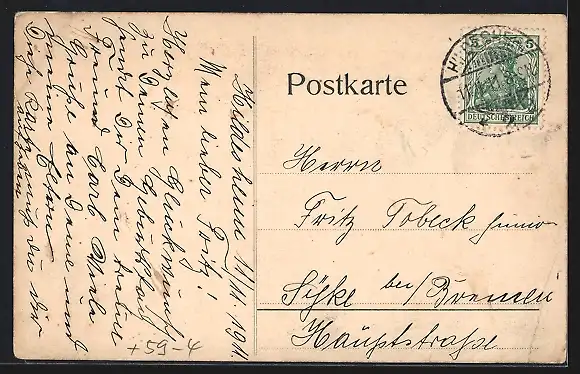 Postkarte
DEUTSCHES REICH
Hildesheim 11/11. 1911.
Mein lieber Fritz!
Herzlichen Glückwunsch
zu Deinem Geburtstag
sendet Dir Dein treuer
Freund Carl
Grüße an Deine und
meine Eltern
Dir
+59-4
Herrn
Fritz Tobeck
Syke bei/Bremen
Hauptstraße